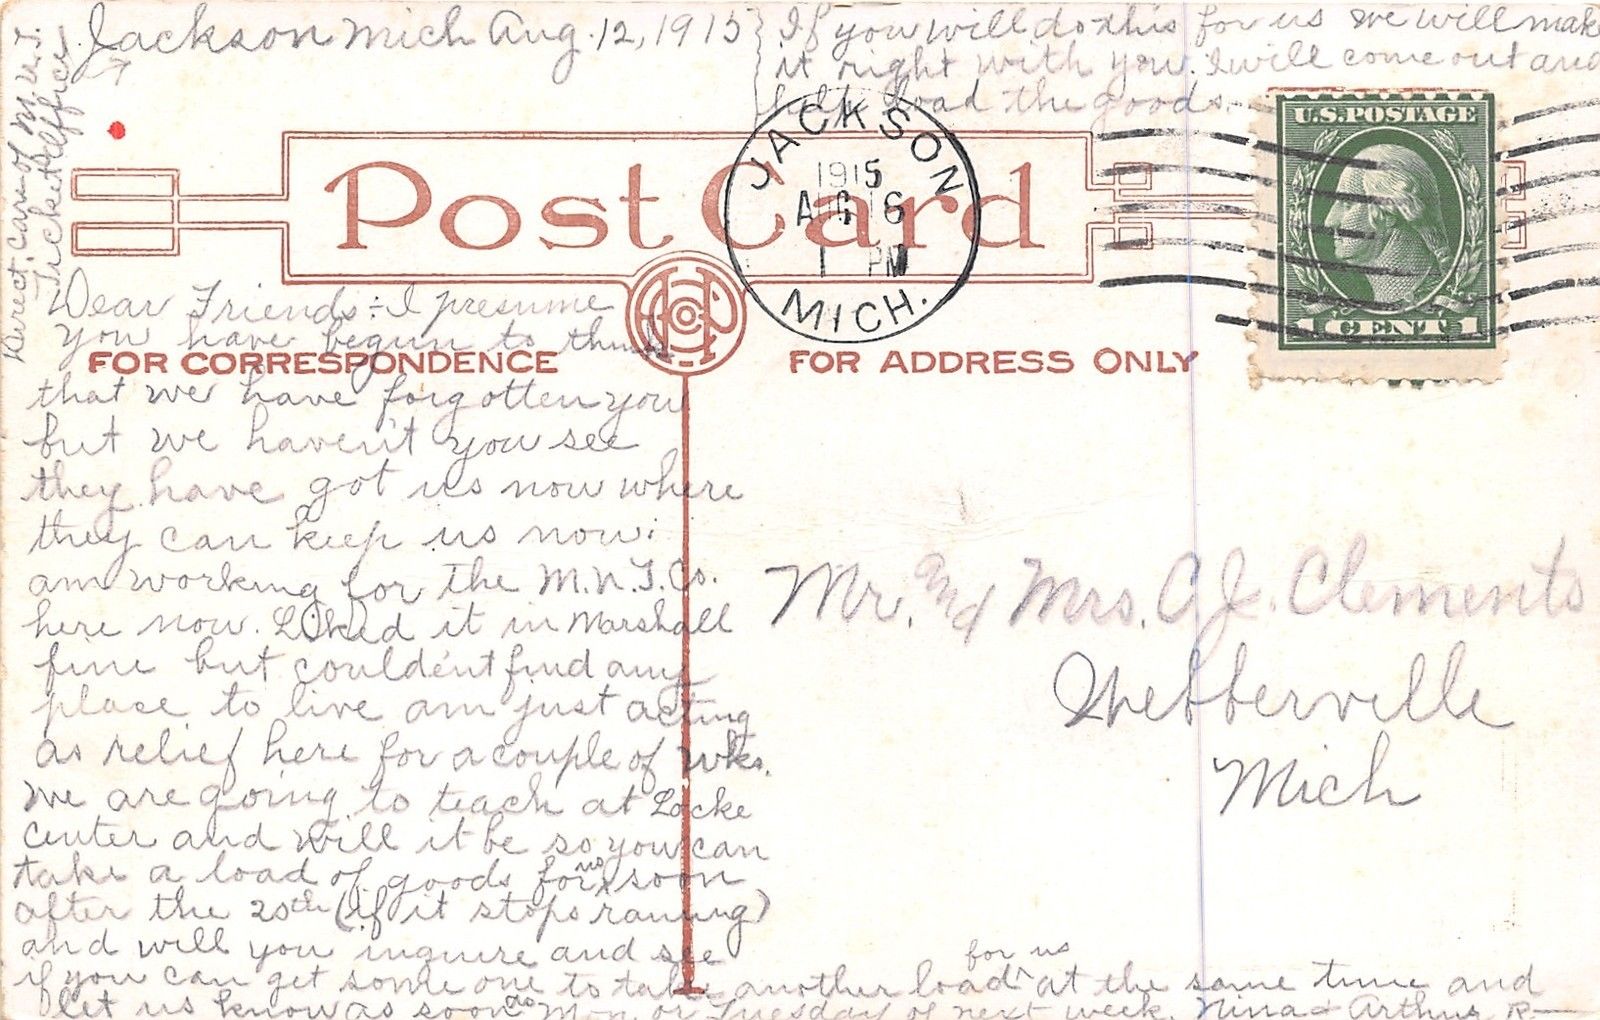 Jackson Mich Aug. 12, 1915
If you will do this for us we will make
it right with you. I will come out and
help load the goods.
Direct care of M.U.T.
Ticket Office
U.S. POSTAGE
1 CENT 1
JACKSON
1915
AUG 16
1 PM
MICH.
Post Card
Dear Friends:- I presume
you have begun to think
FOR CORRESPONDENCE
FOR ADDRESS ONLY
that we have forgotten you
but we haven't you see
they have got us now where
they can keep us now.
am working for the M.U.T. Co.
here now. Liked it in Marshall
fine but could'ent find any
place to live am just acting
as relief here for a couple of wks.
We are going to teach at Locke
center and will it be so you can
take a load of goods for us soon
after the 20th (if it stops raning)
and will you inquire and see
if you can get some one to take another load for us at the same time and
let us know as soon as Mon. or Tuesday of next week. Nina & Arthur R—
Mr. and Mrs. C. J. Clements
Webberville
Mich